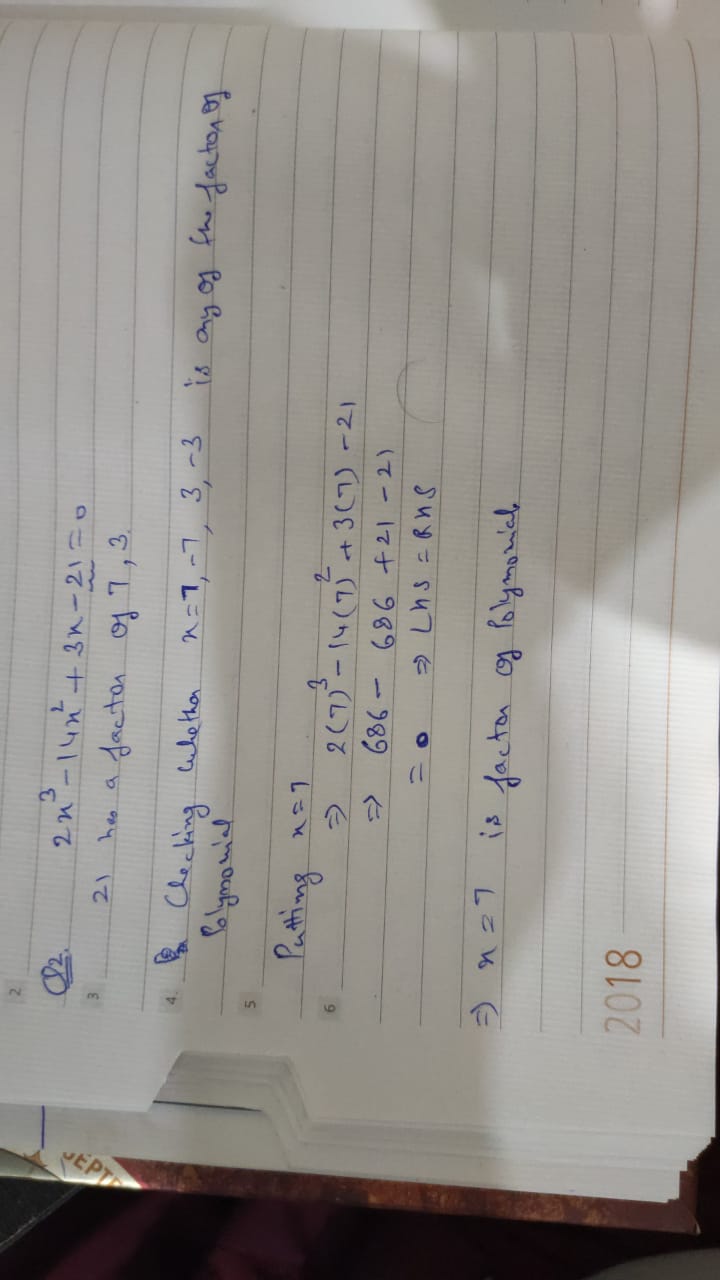 2
Q2. 2x³ - 14x² + 3x - 21 = 0
3
21 has a factor of 7, 3.
4. Checking whether x = 7, -7, 3, -3 is any of the factor of
Polynomial
5
Putting x = 7
6
⇒ 2(7)³ - 14(7)² + 3(7) - 21
⇒ 686 - 686 + 21 - 21
= 0 ⇒ LHS = RHS
⇒ x = 7 is factor of Polynomial.
2018
SEPTE